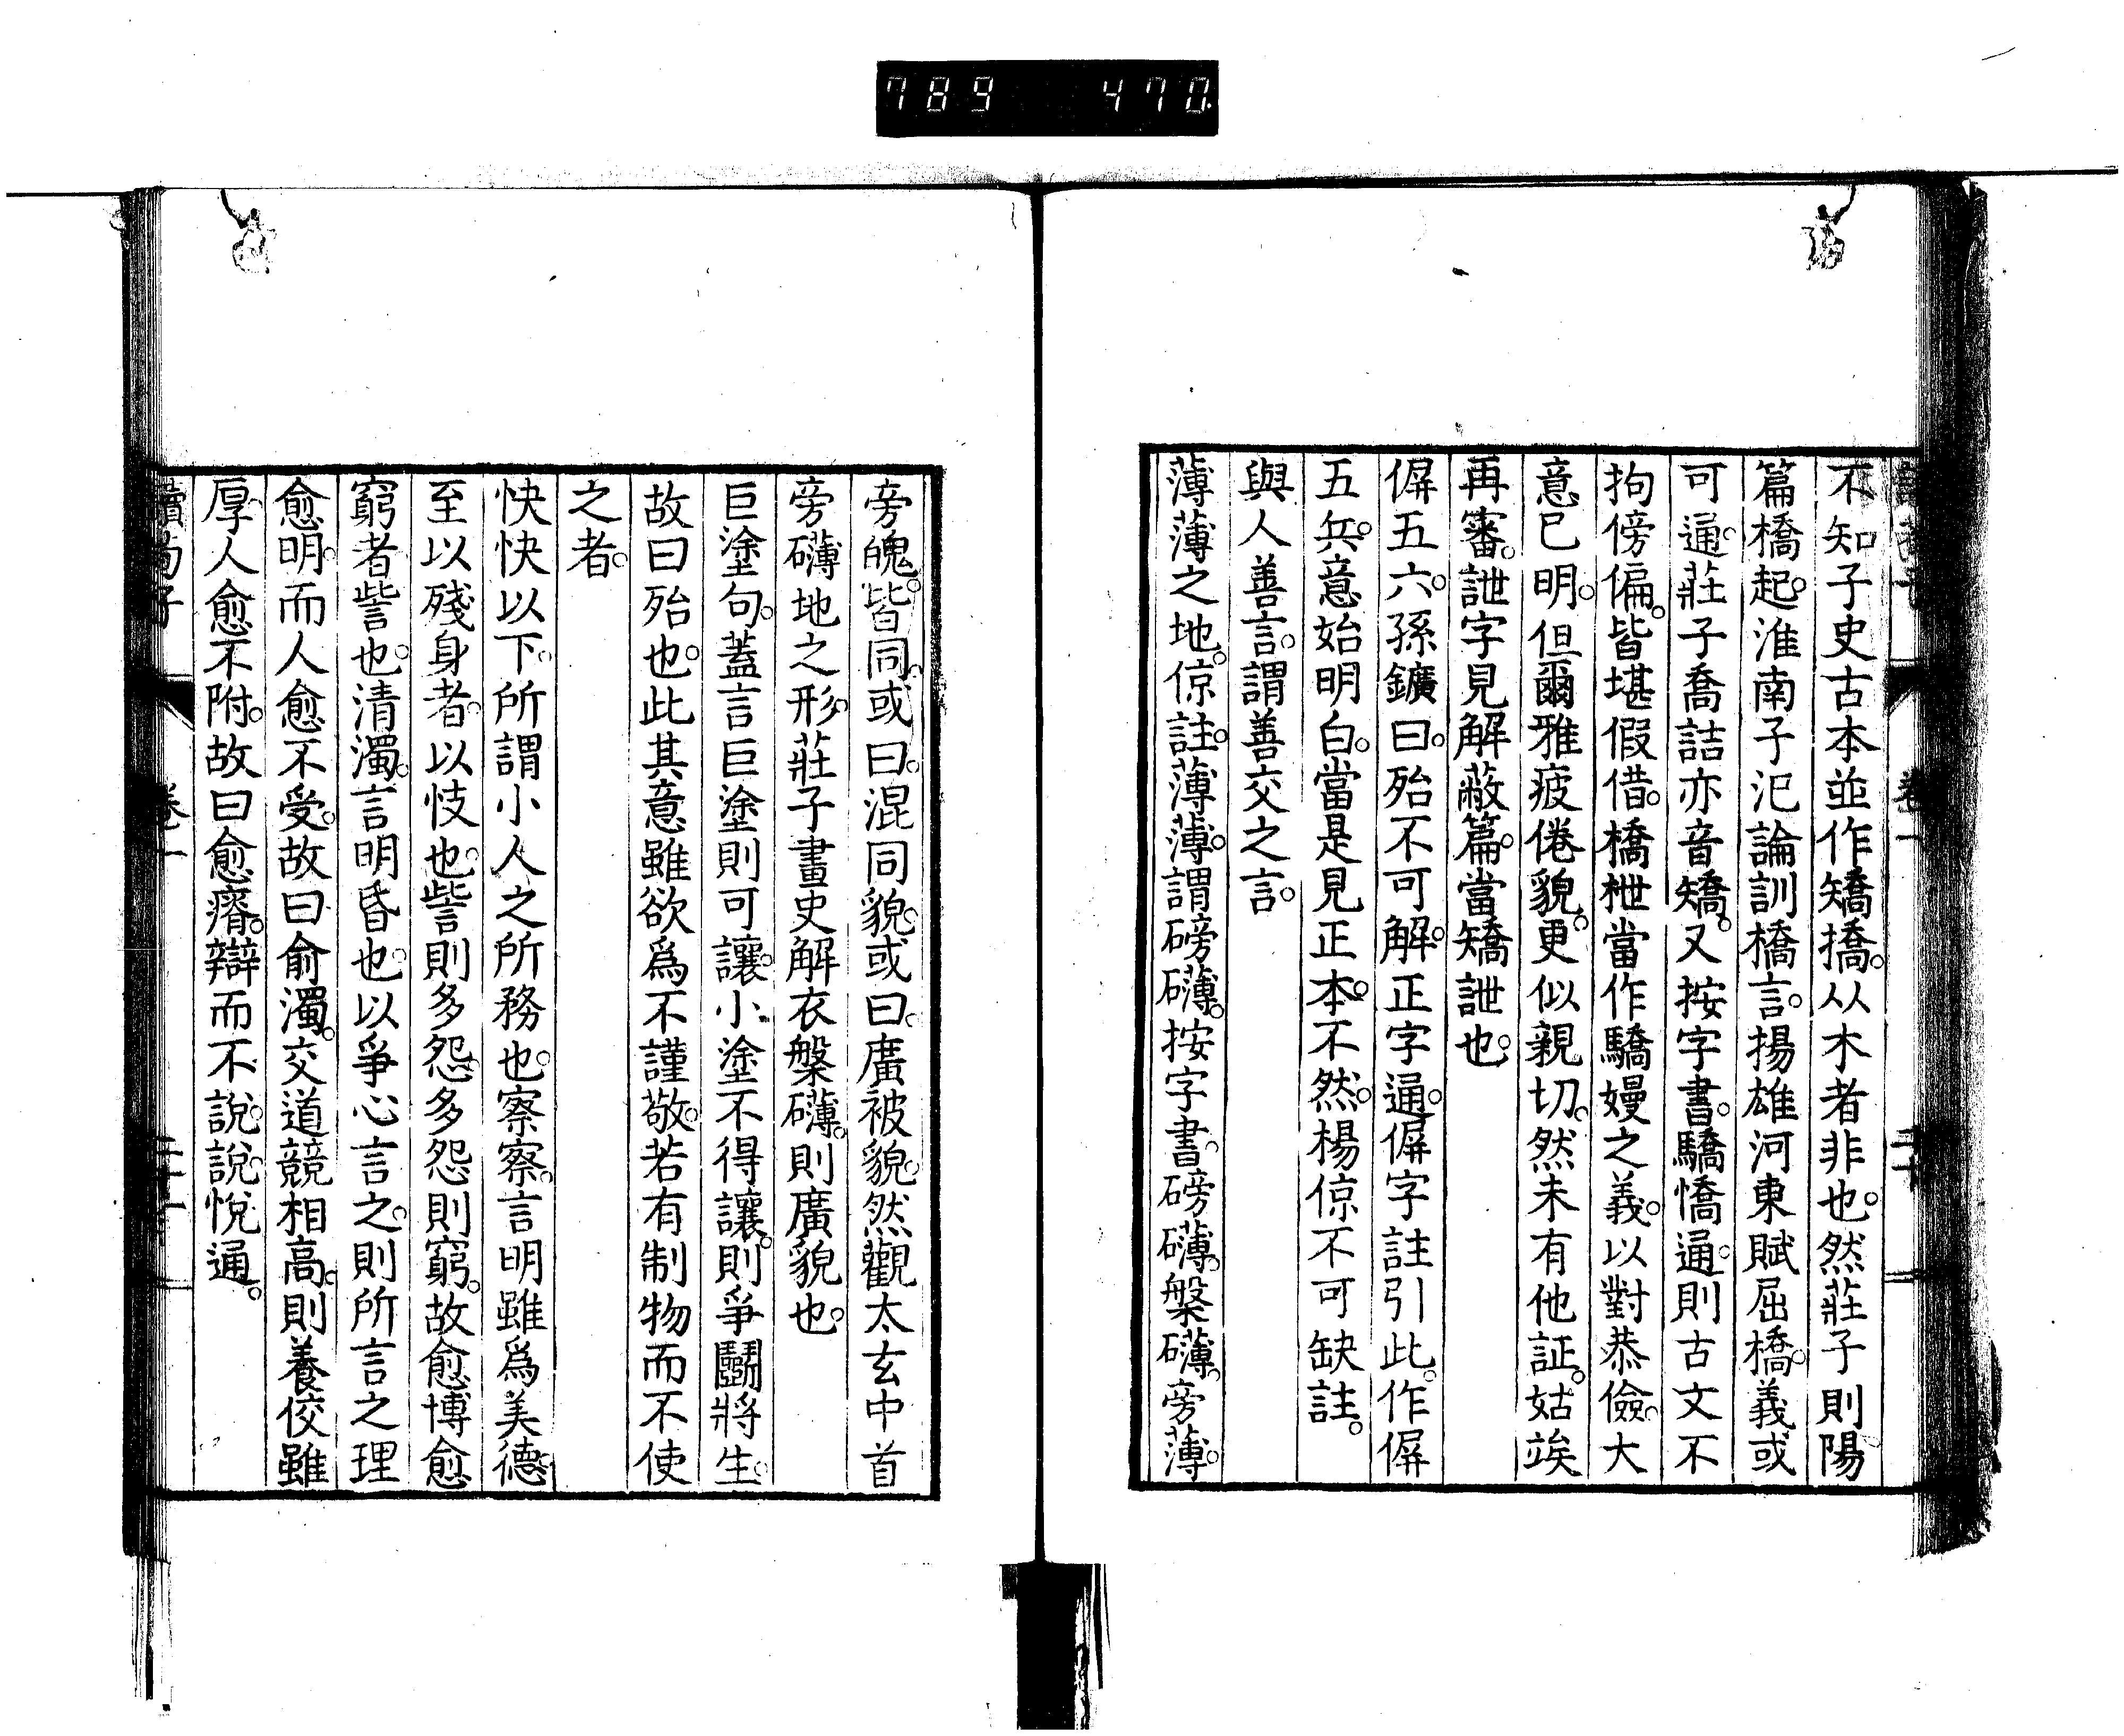 789 470
不知子史古本並作矯撟。从木者非也。然莊子則陽
篇橋起。淮南子氾論訓橋言。揚雄河東賦屈橋。義或
可通。莊子喬詰亦音矯。又按字書。驕憍通。則古文不
拘傍偏。皆堪假借。橋枻當作驕嫚之義。以對恭儉。大
意已明。但爾雅疲倦貌。更似親切。然未有他証。姑竢
再審。詍字見解蔽篇。當矯詍也。
偋五六。孫鑛曰。殆不可解。正字通。偋字註引此。作偋
五兵。意始明白。當是見正本。不然。楊倞不可缺註。
與人善言。謂善交之言。
薄薄之地。倞註。薄薄。謂磅礴。按字書。磅礴。槃礴。旁薄。
旁魄。皆同。或曰。混同貌。或曰。廣被貌。然觀太玄中首
旁礴地之形。莊子畫史解衣槃礴。則廣貌也。
巨塗句。蓋言巨塗則可讓。小塗不得讓。則爭鬭將生。
故曰殆也。此其意雖欲爲不謹敬。若有制物而不使
之者。
快快以下。所謂小人之所務也。察察。言明雖爲美德。
至以殘身者。以忮也。訾則多怨。多怨則窮。故愈博愈
窮者訾也。清濁。言明昏也。以爭心言之。則所言之理
愈明。而人愈不受。故曰俞濁。交道競相高。則養佼雖
厚。人愈不附。故曰愈瘠。辯而不說。說悅通。
讀荀子 卷一 二十一